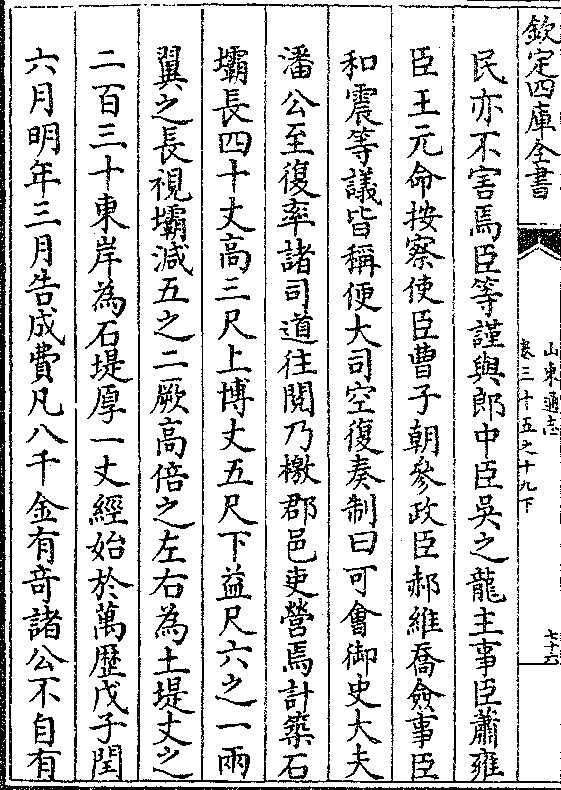 欽定四庫全書
山東通志
卷三十五之十九下
七十六
民亦不害焉臣等謹與郎中臣吳之龍主事臣蕭雍
臣王元命按察使臣曹子朝參政臣郝維喬僉事臣
和震等議皆稱便大司空復奏制曰可會御史大夫
潘公至復率諸司道往閱乃檄郡邑吏營焉計築石
壩長四十丈高三尺上博丈五尺下益尺六之一兩
翼之長視壩減五之二厥高倍之左右為土堤丈之
二百三十東岸為石堤厚一丈經始於萬歴戊子閏
六月明年三月告成費凡八千金有竒諸公不自有